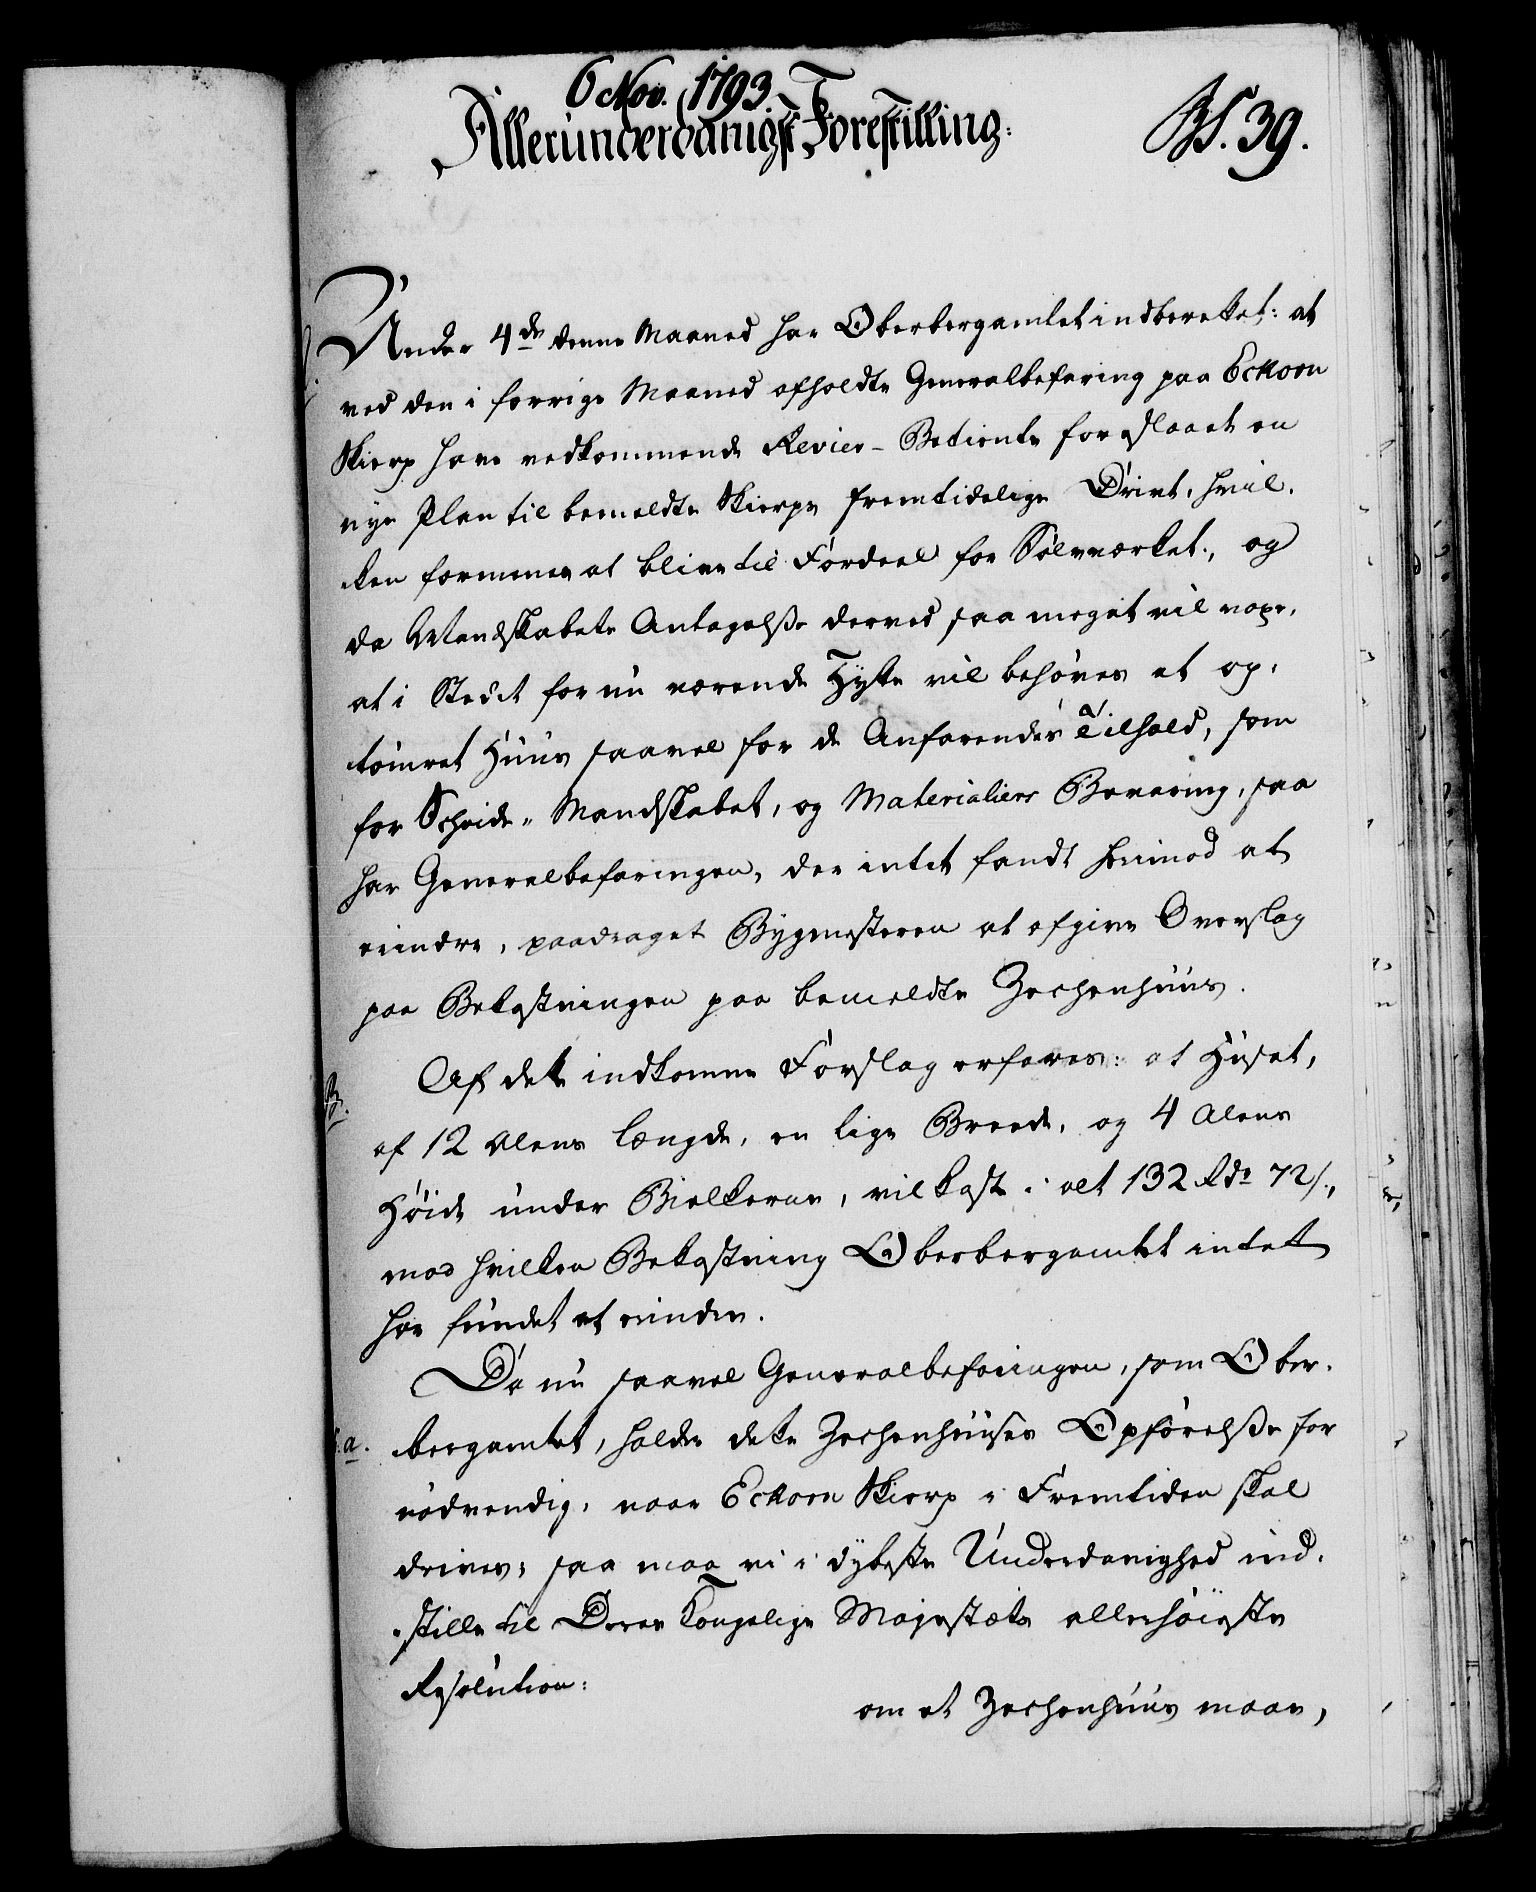 6 Nov. 1793.
Allerunderdanigst Forestilling:
Bf. 39.
Under 4de denne Maaned har Oberbergamtet indberettet: at
ved den i forrige Maaned afholdte Generalbefaring paa Eckorn
Skierp have vedkommende Revier-Betiente foreslaaet en
nye Plan til bemeldte Skierps fremtidelige Drivt, hvil.
ken formenes at blive til Fordeel for Sølvværket., og
da Mandskabets Antagelsse derved saa meget vil voxe,
at i Stedet for nu værende Hytte vil behøves et op,
tømret Huus saavel for de Anfarendes Tilhold, som
for Scheide-Mandskabet, og Materialiers Bevaring, saa
har Generalbefaringen, der intet fandt herimod at
erindre, paadraget Bygmesteren at afgive Overslag
paa Bekostningen paa bemeldte Zechenhuus.
B.
Af dette indkomne Forslag erfares: at Huset,
af 12 Alens Længde, en lige Breede, og 4 Alens
Høide under Bielkerne, vil koste i alt 132 Rdr 72 s.,
mod hvilken Bekostning Oberbergamtet intet
har fundet at erindre.
Da nu saavel Generalbefaringen, som Ober-
a.
bergamtet, holder dette Zechenhuuses Opførelsse for
nødvendig, naar Eckorn Skierp i Fremtiden skal
drives; saa maa vi i dybeste Underdanighed ind.
stille til Deres Kongelige Majestæts allerhøieste
Resolution:
om et Zechenhuus maae,